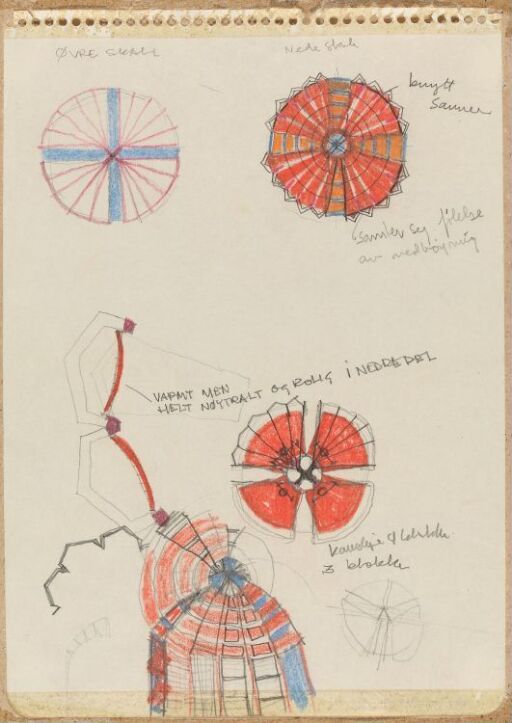 ØVRE SKALL
Nedre skall
knytt
Sammen
Samler seg følelse
av nedbøyning
VARMT MEN
HELT NØYTRALT OG ROLIG I NEDREDEL
3 blokker